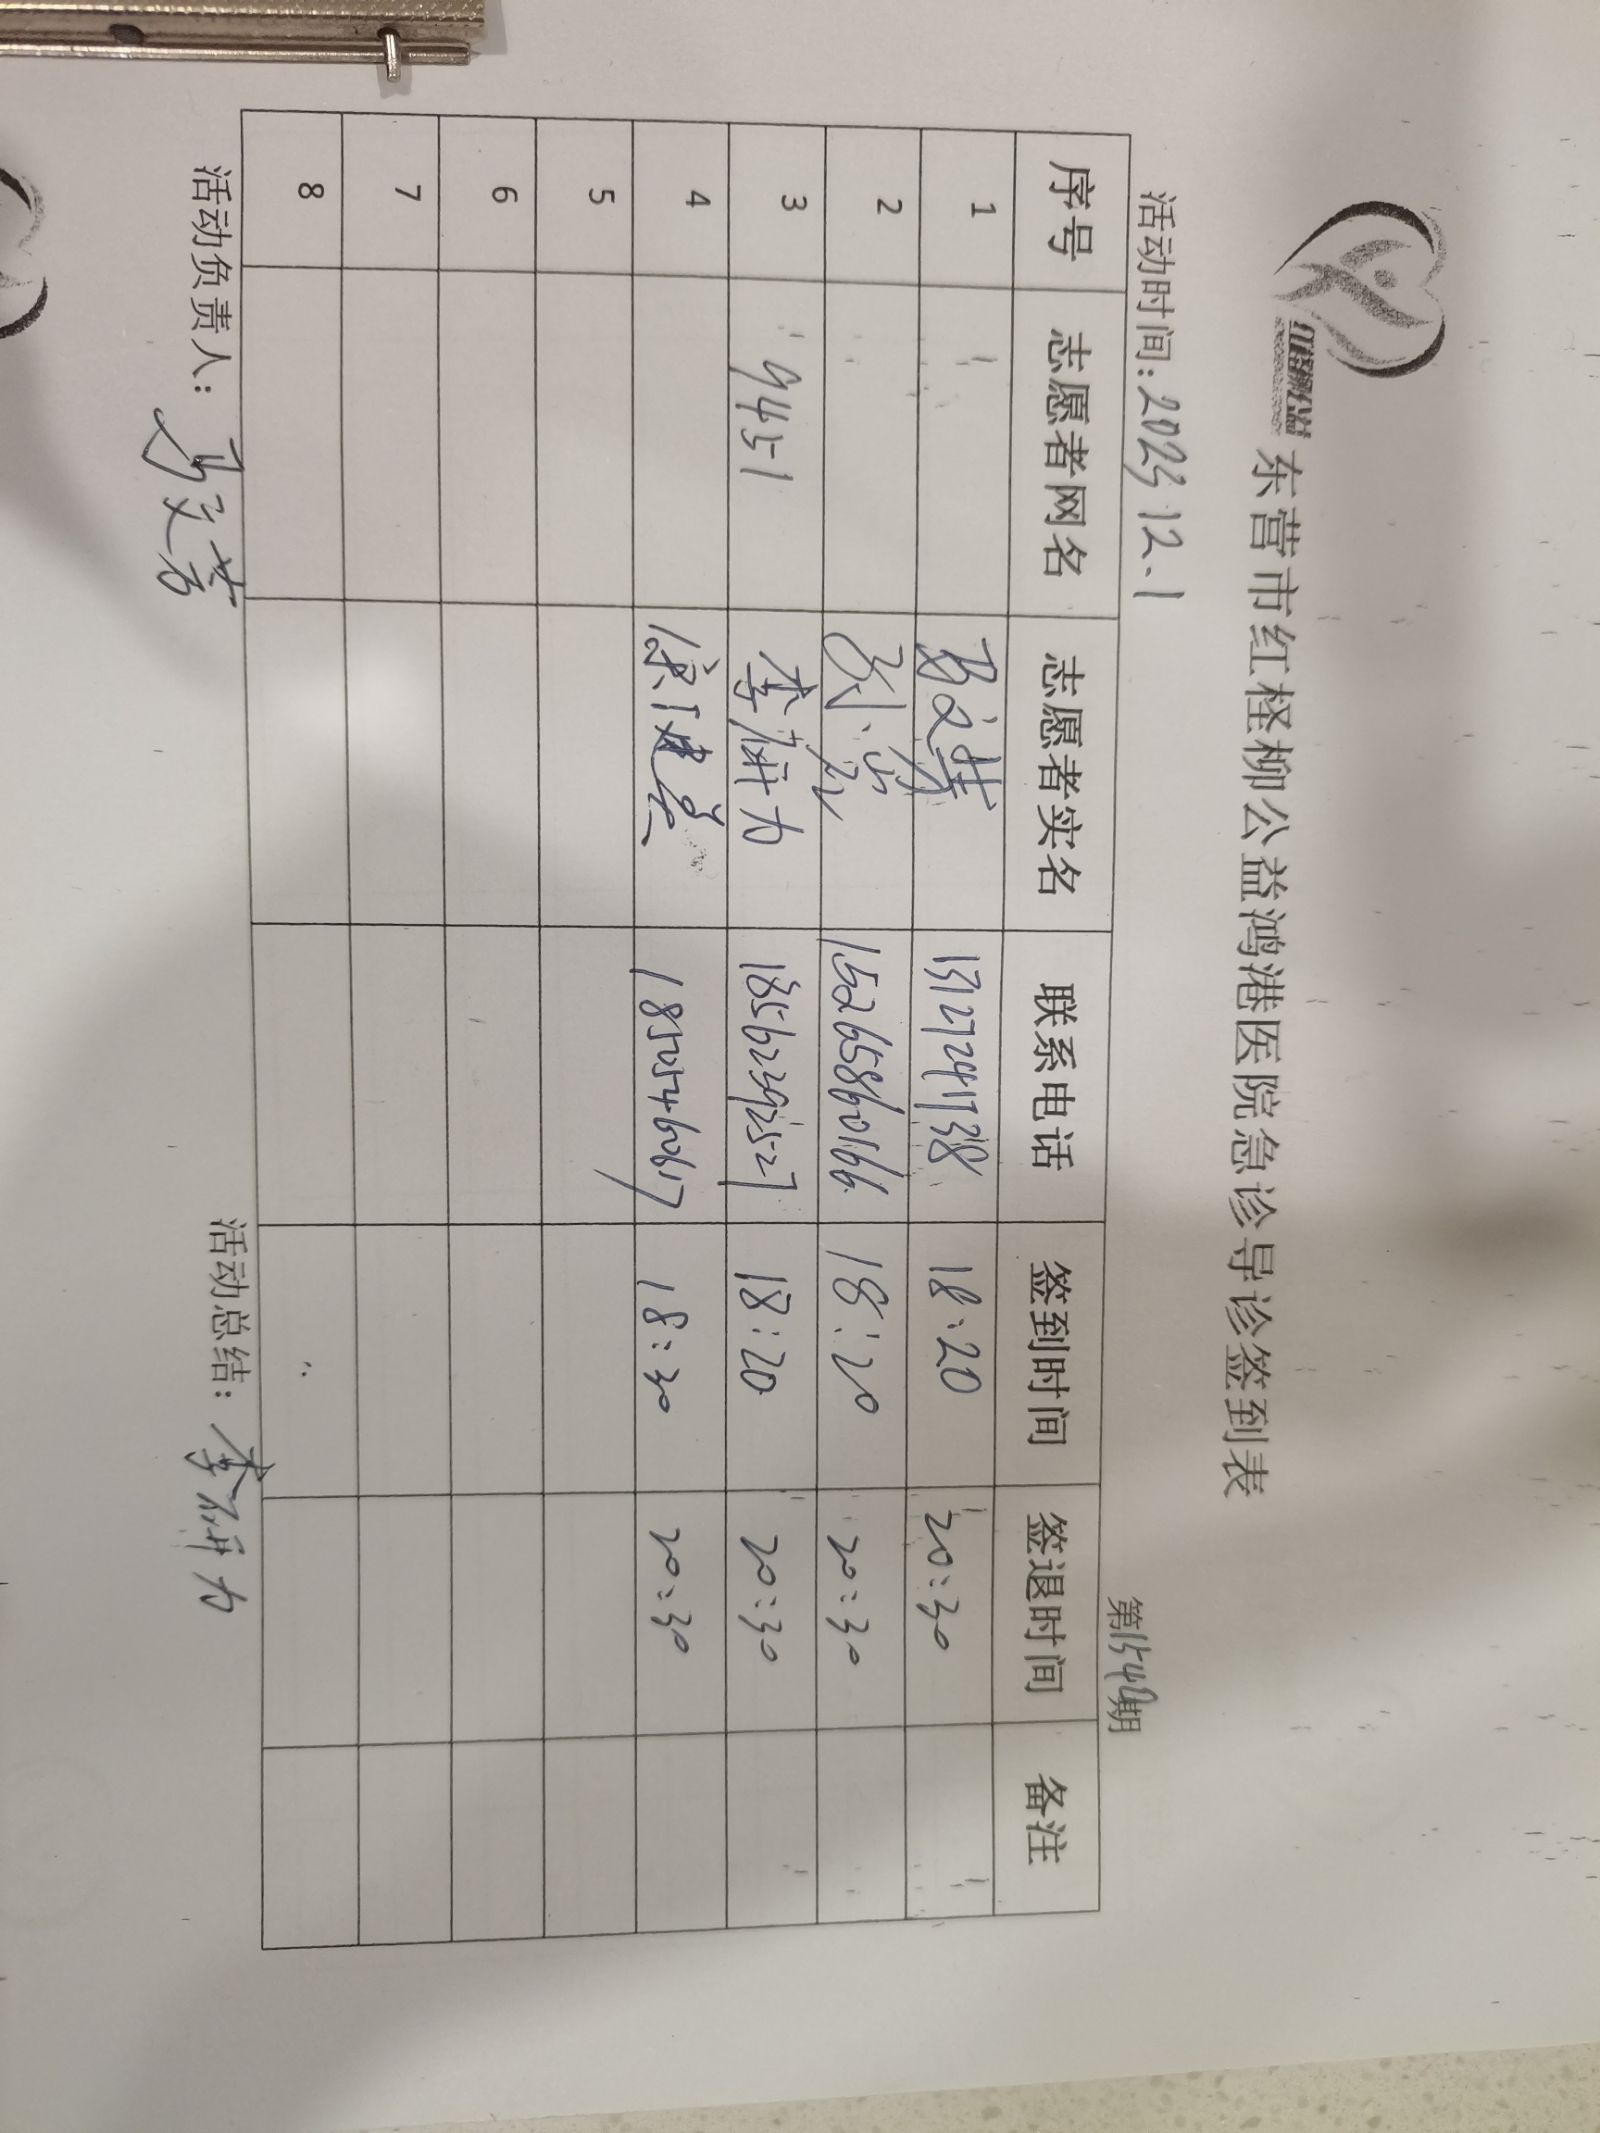 红柽柳公益
东营市红柽柳公益鸿港医院急诊导诊签到表
活动时间：2023.12.1 第1549期
序号 志愿者网名 志愿者实名 联系电话 签到时间 签退时间 备注
1 13127241738 18:20 20:30
2 15265860166 18:20 20:30
3 9451 李研力 18562392527 18:20 20:30
4 徐建美 18505460617 18:30 20:30
5
6
7
8
活动负责人： 活动总结：李研力